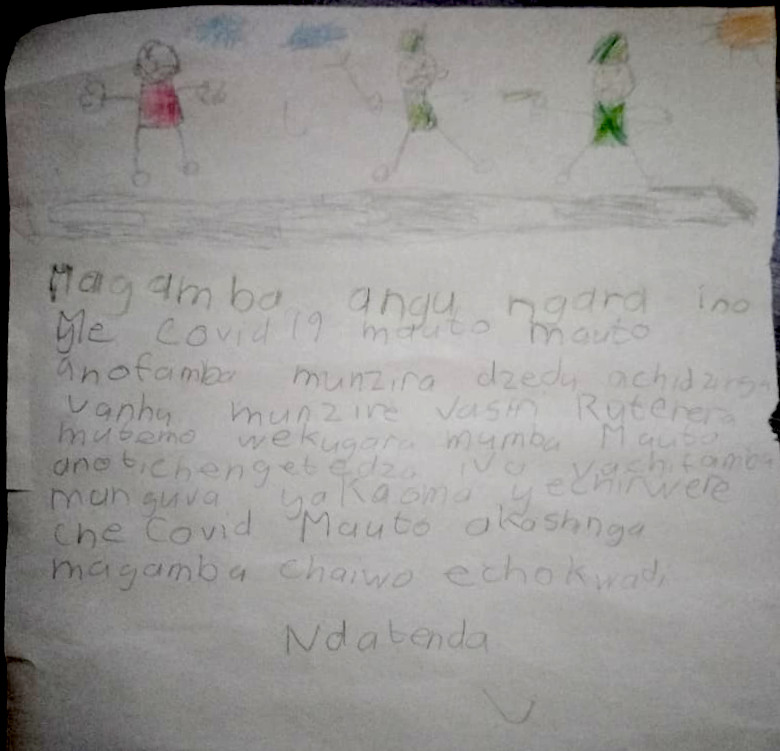 Magamba angu ngara ino
yle Covid 19 mauto mauto
anofamba munzira dzedu achidzinga
vanhu munzire vasin Ruterera
mutemo wekugara mumba Mauto
anotichengetedza iva vachifamba
manguva yakaoma yechirwere
che Covid Mauto akashnga
magamba chaiwo echokwadi
Ndatenda